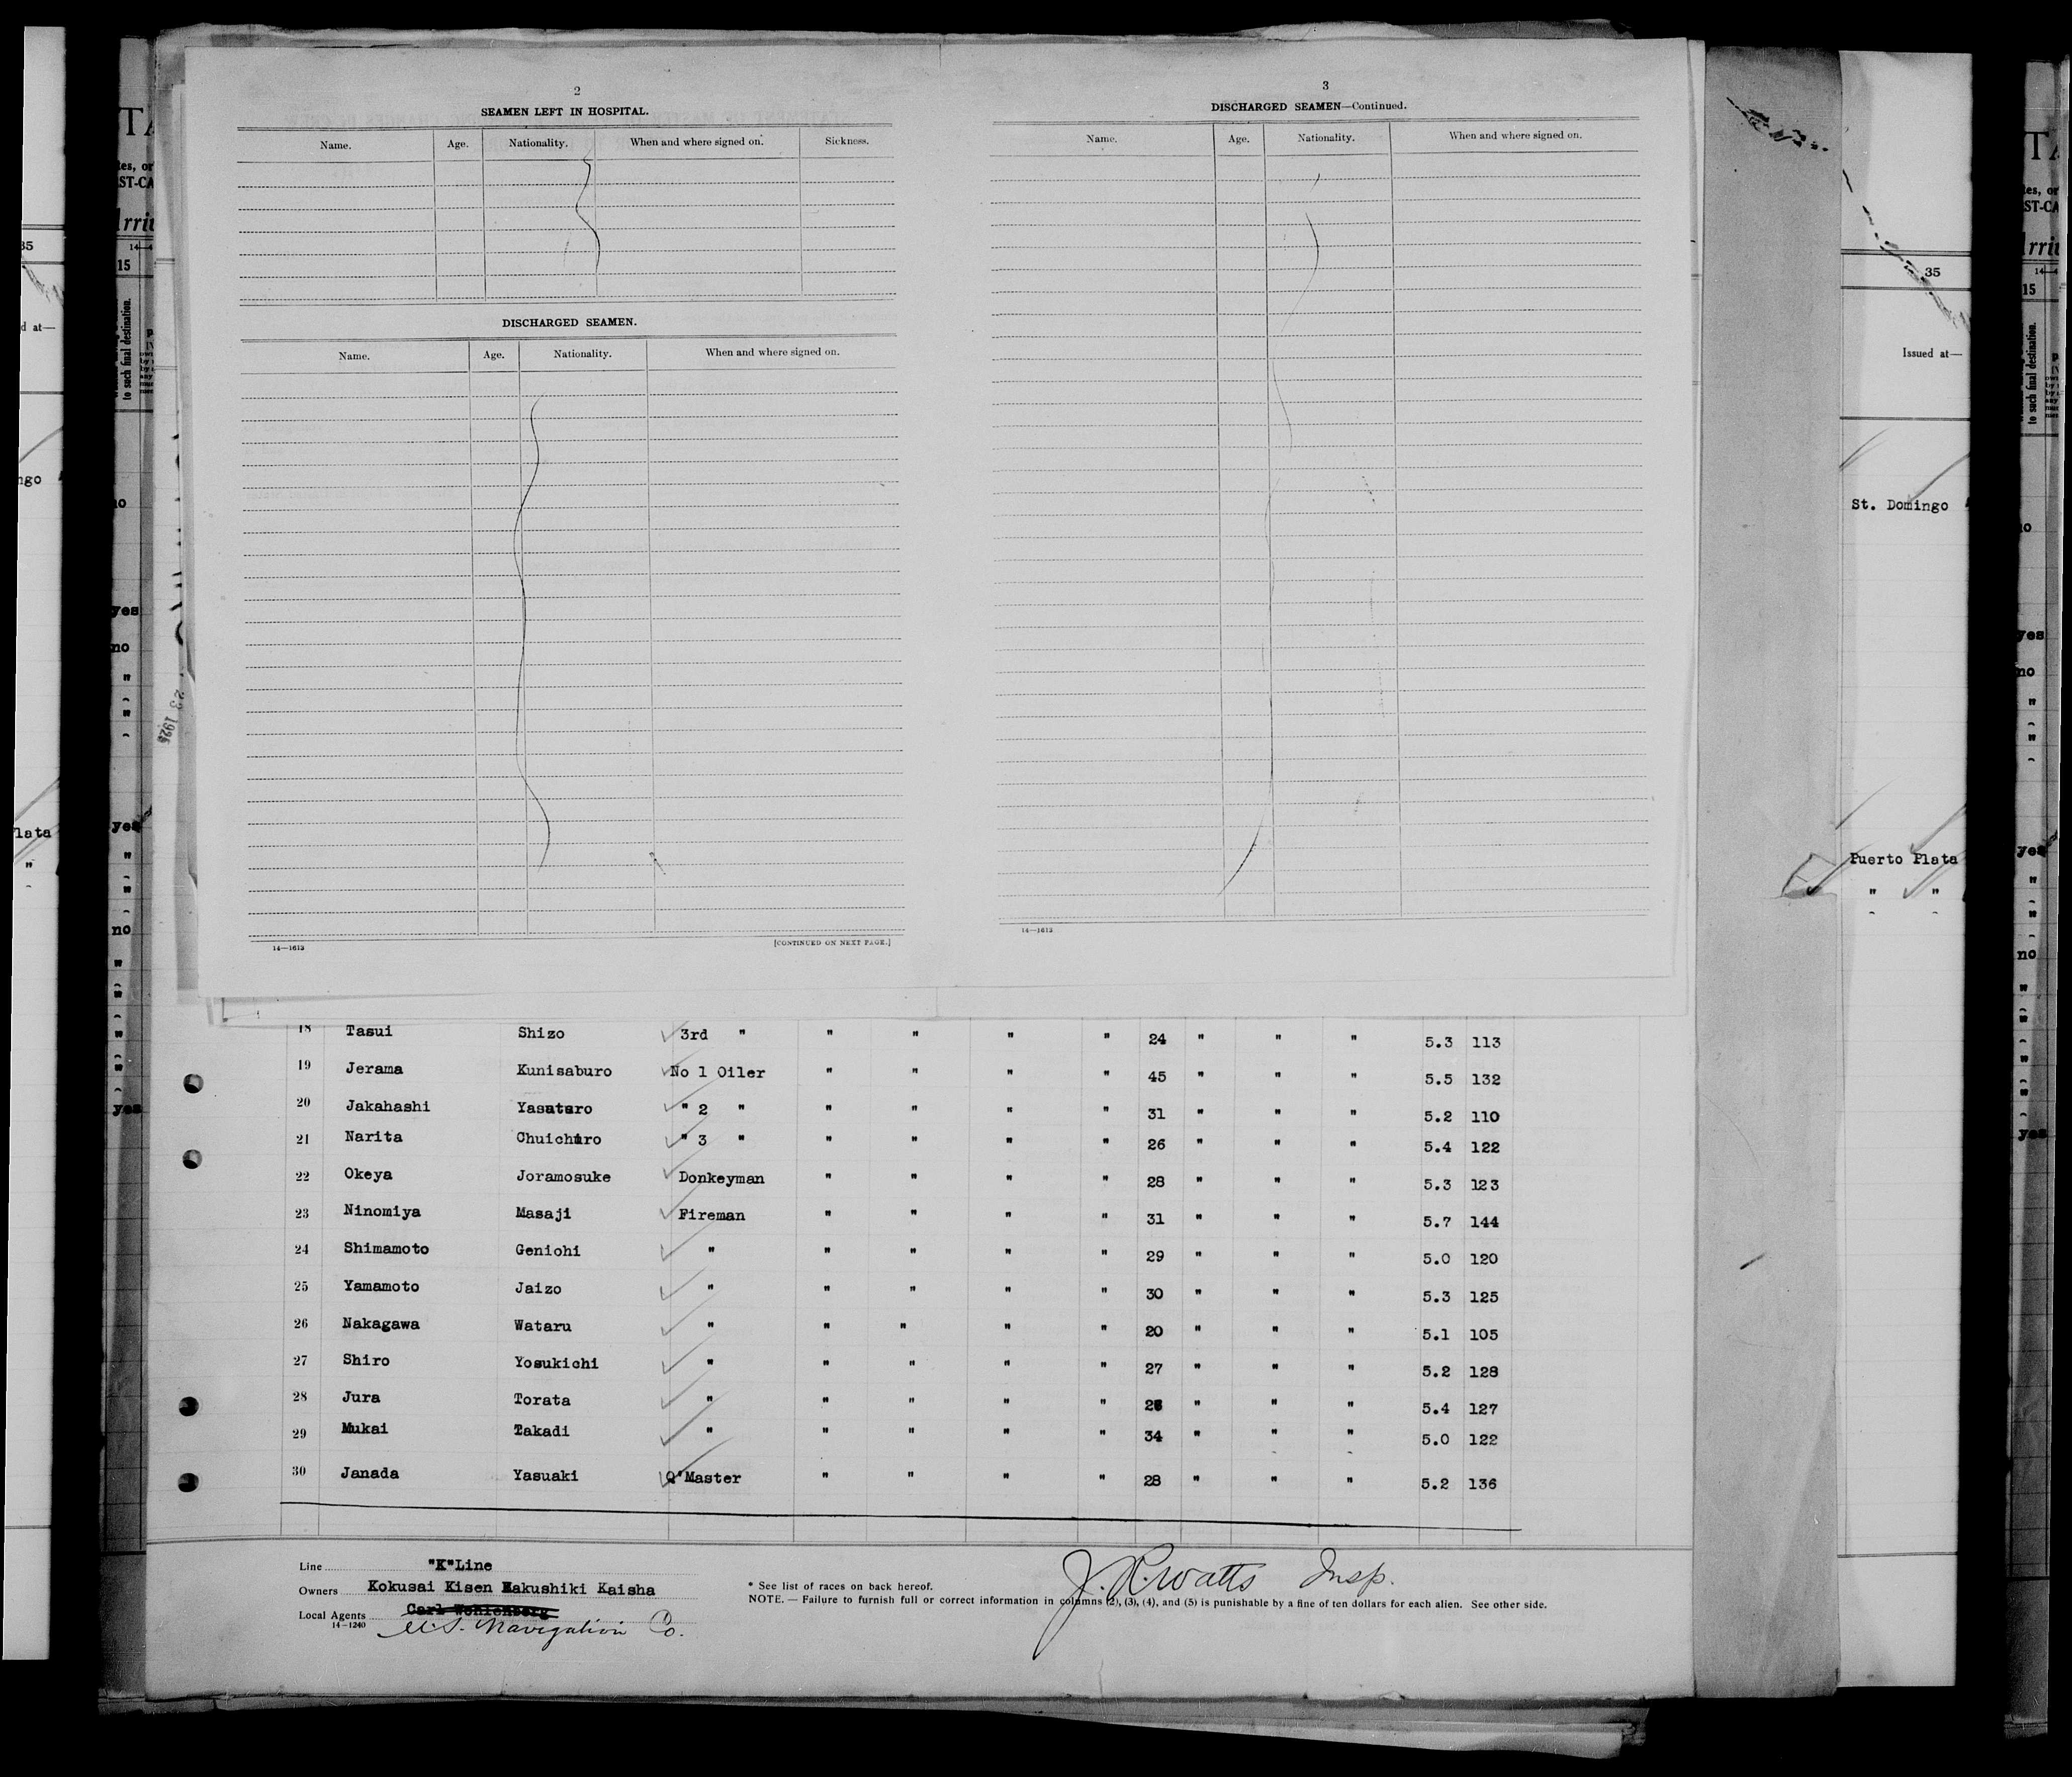 2
SEAMEN LEFT IN HOSPITAL.
Name. Age. Nationality. When and where signed on. Sickness.
DISCHARGED SEAMEN.
Name. Age. Nationality. When and where signed on.
14—1613 [CONTINUED ON NEXT PAGE.]
3
DISCHARGED SEAMEN—Continued.
Name. Age. Nationality. When and where signed on.
14—1613
18 Tasui Shizo 3rd " " " " " 24 " " " 5.3 113
19 Jerama Kunisaburo No 1 Oiler " " " " 45 " " " 5.5 132
20 Jakahashi Yasutaro " 2 " " " " " 31 " " " 5.2 110
21 Narita Chuichiro " 3 " " " " " 26 " " " 5.4 122
22 Okeya Joramosuke Donkeyman " " " " 28 " " " 5.3 123
23 Ninomiya Masaji Fireman " " " " 31 " " " 5.7 144
24 Shimamoto Genichi " " " " " 29 " " " 5.0 120
25 Yamamoto Jaizo " " " " " 30 " " " 5.3 125
26 Nakagawa Wataru " " " " " 20 " " " 5.1 105
27 Shiro Yosukichi " " " " " 27 " " " 5.2 128
28 Jura Torata " " " " " " " " 5.4 127
29 Mukai Takadi " " " " " 34 " " " 5.0 122
30 Janada Yasuaki Q'Master " " " " 28 " " " 5.2 136
Line "K"Line
Owners Kokusai Kisen Kakushiki Kaisha
Local Agents Carl Wohlenberg
14—1240 U.S. Navigation Co.
* See list of races on back hereof.
NOTE.—Failure to furnish full or correct information in columns (2), (3), (4), and (5) is punishable by a fine of ten dollars for each alien. See other side.
J. R. Watts Insp.
35
Issued at—
St. Domingo
Puerto Plata
" "
15
to such final destination.
yes
no
"
"
yes
"
"
no
"
"
"
"
yes
23 1926